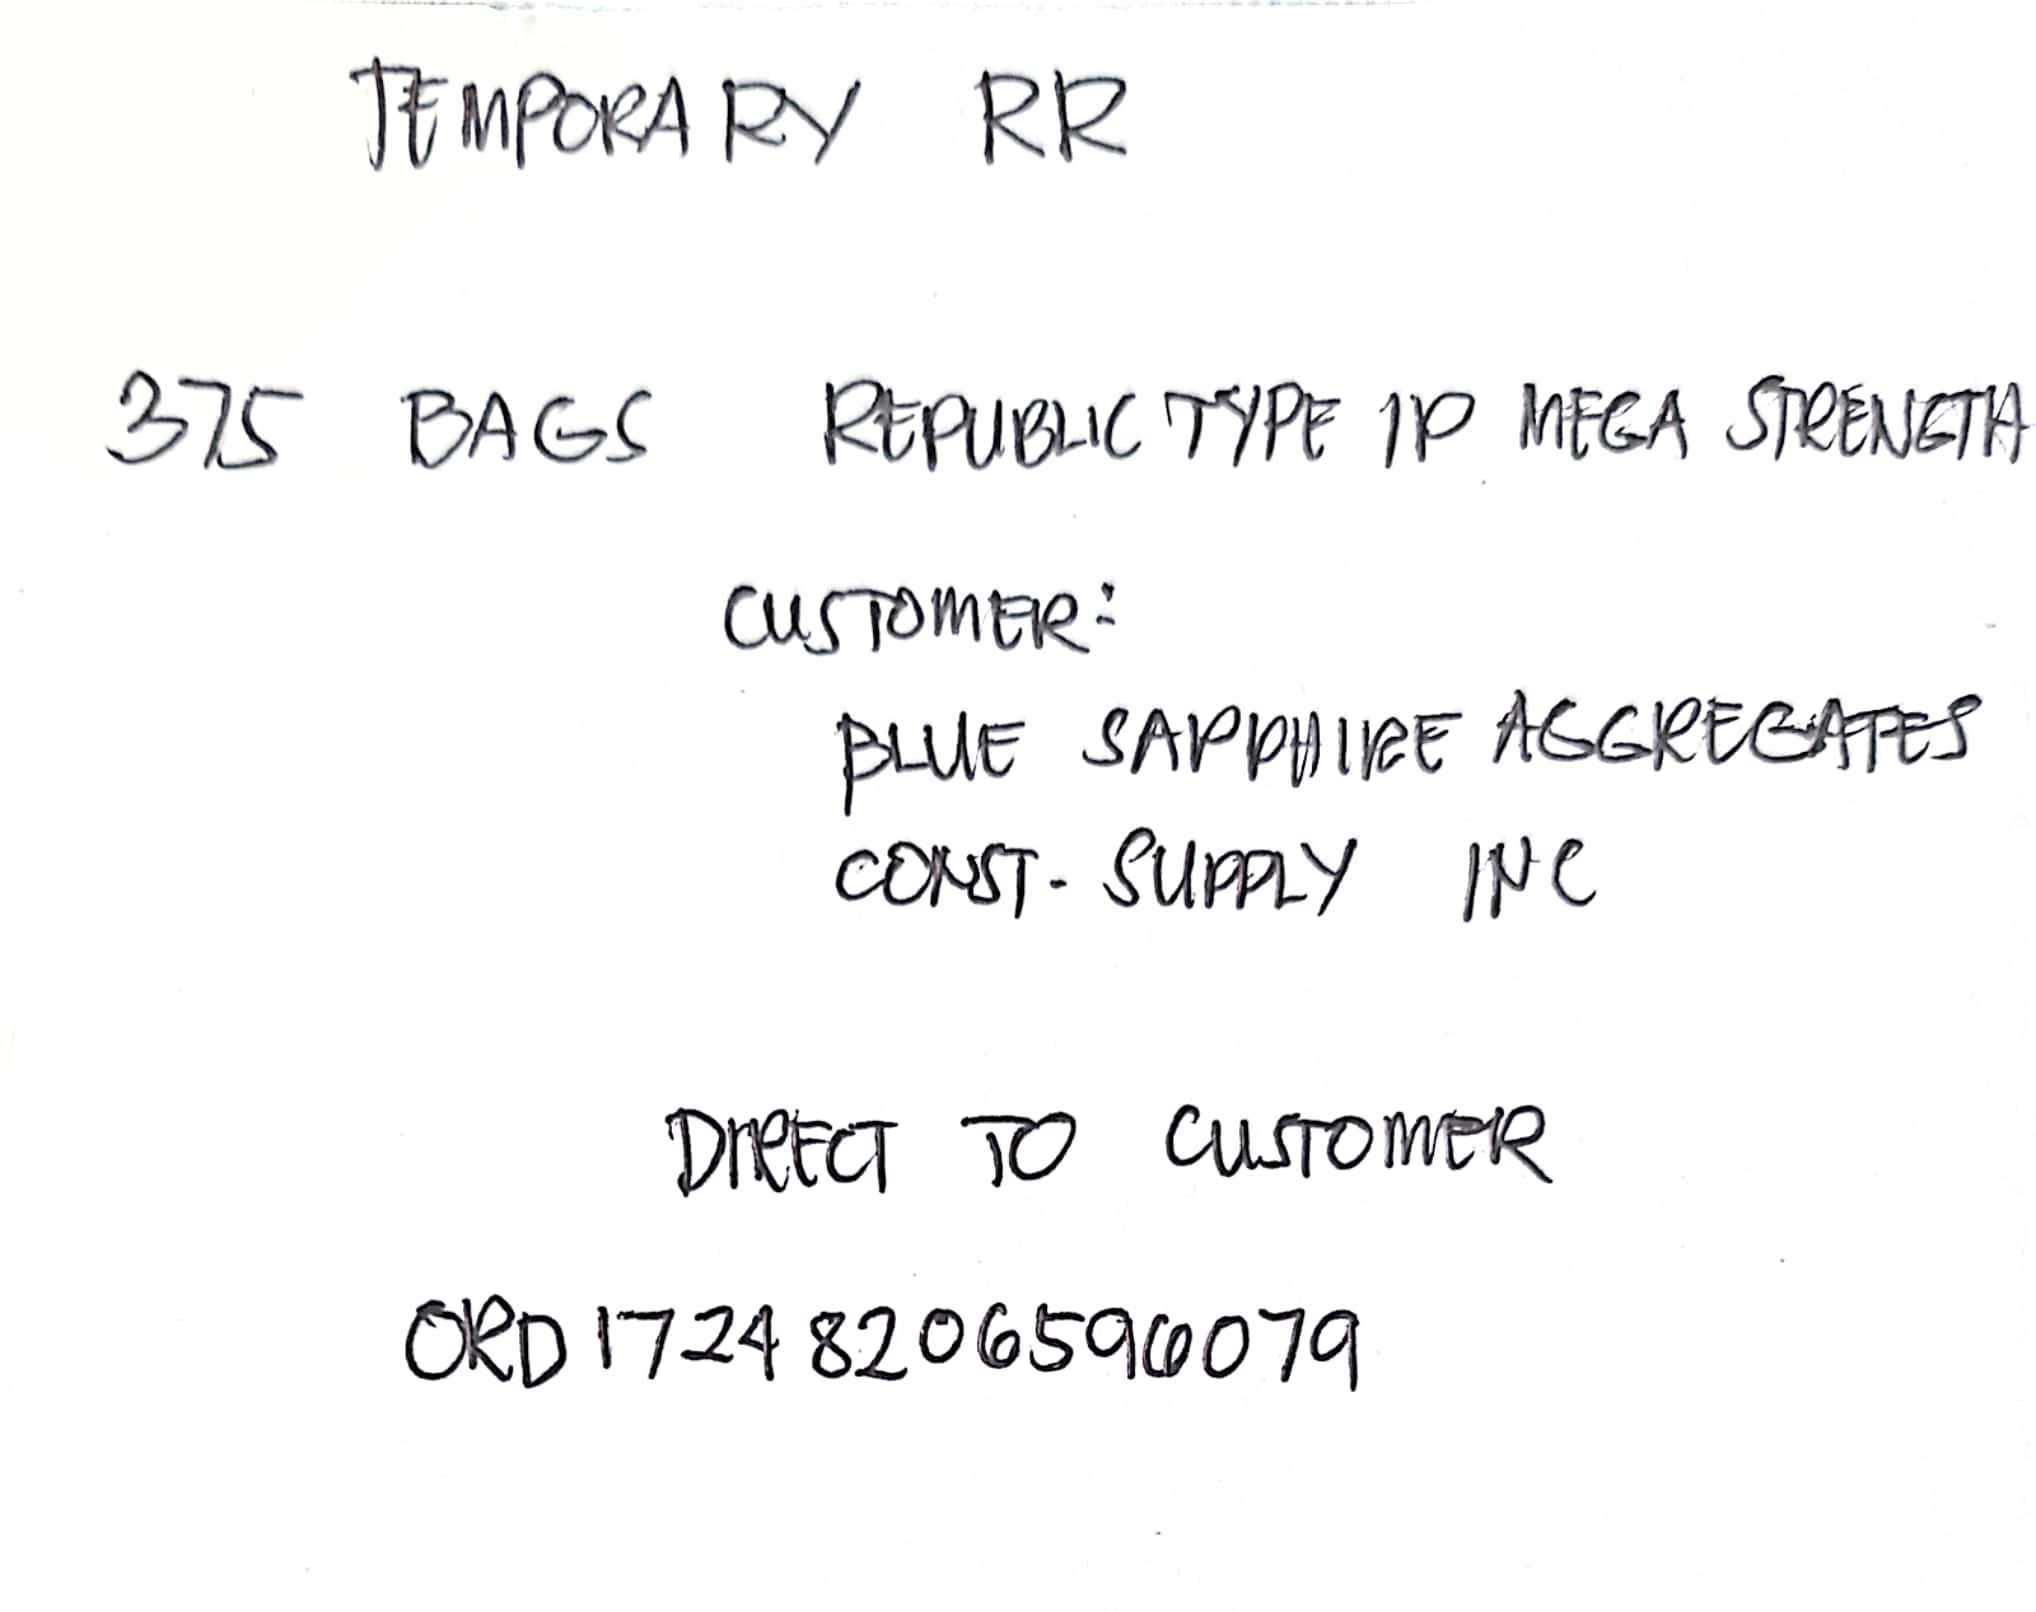 TEMPORARY RR
375 BAGS REPUBLIC TYPE 1P MEGA STRENGTH
CUSTOMER:
BLUE SAPPHIRE AGGREGATES
CONST. SUPPLY INC
DIRECT TO CUSTOMER
ORD17248206596079